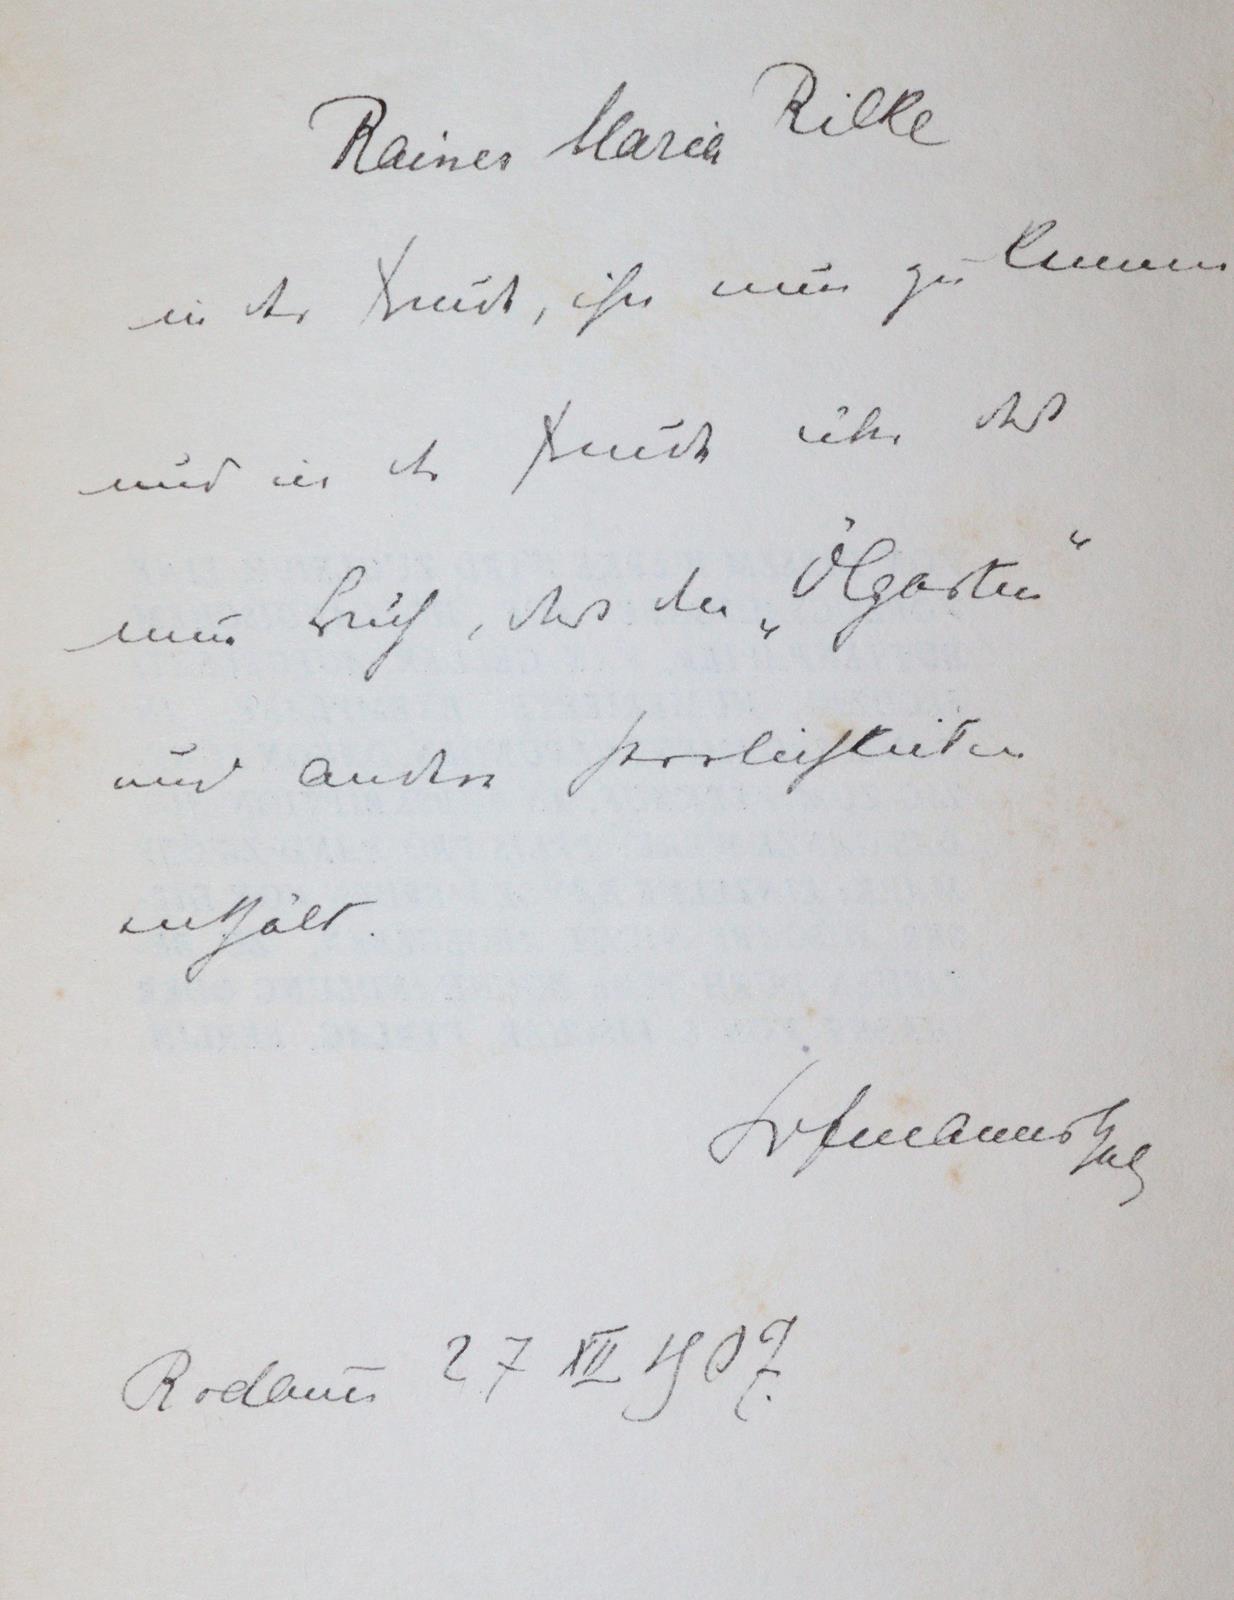 Rainer Maria Rilke
in der Freude, ihn nun zu kennen
und in der Freude über das
neue Buch, das den „Ölgarten“
und andere Herrlichkeiten
enthält.
Hofmannsthal
Rodaun 27 XII 1907.